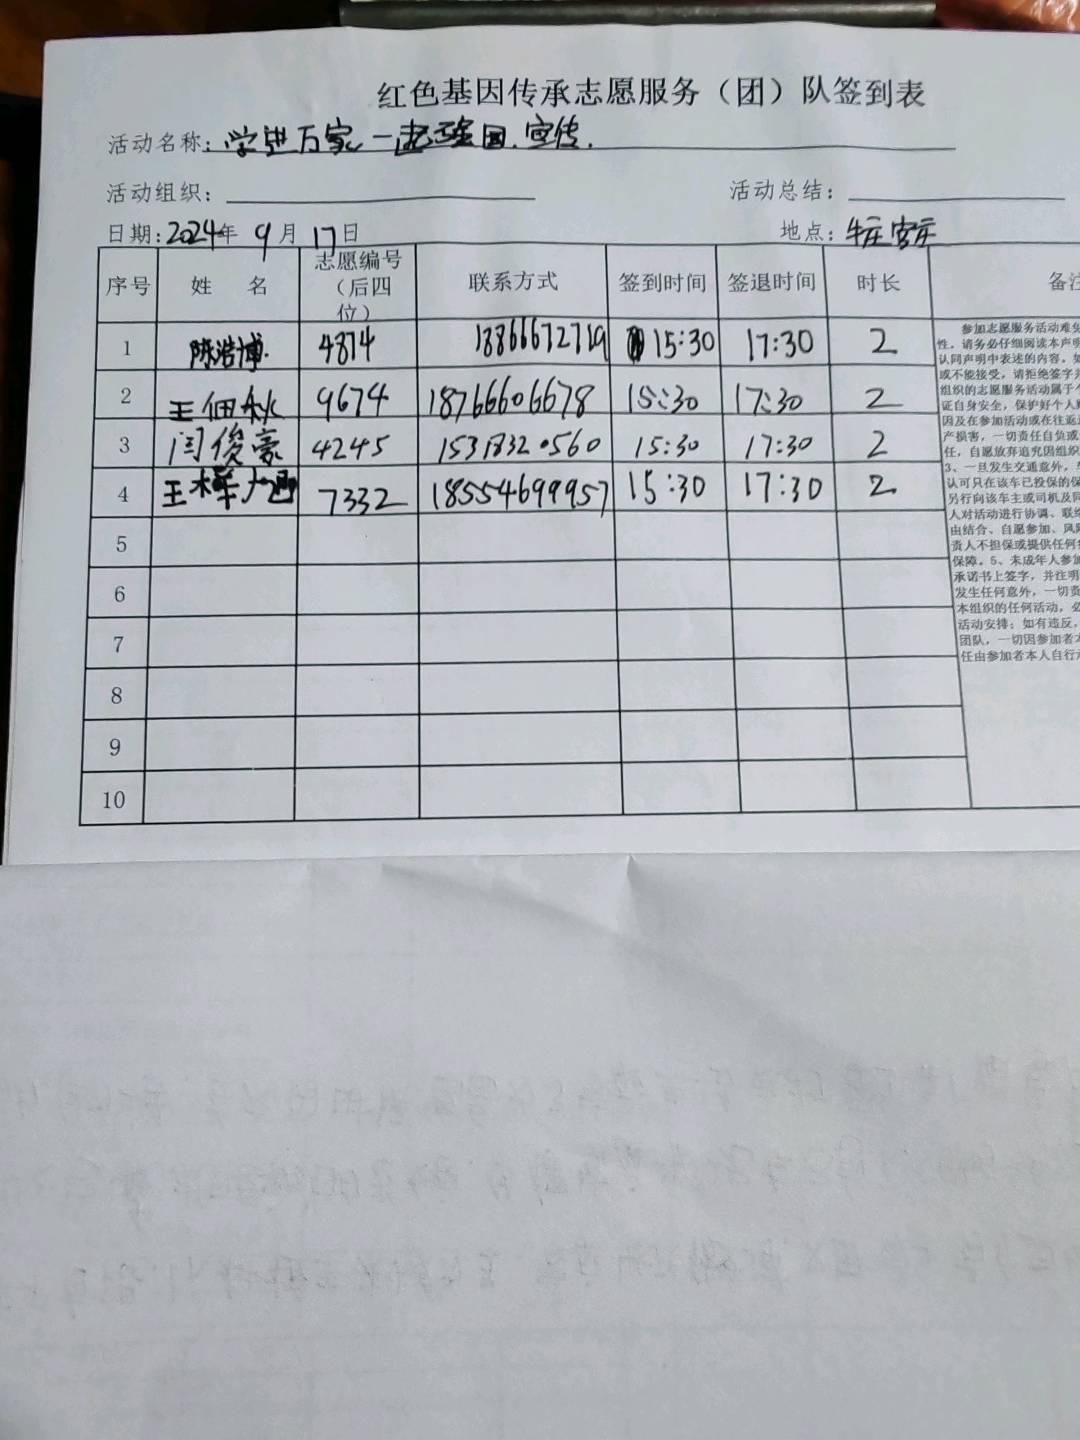 红色基因传承志愿服务（团）队签到表
活动名称：学进万家 一起强国.宣传.
活动组织： 活动总结：
日期：2024年 9月 17日 地点：
序号 姓 名 志愿编号（后四位） 联系方式 签到时间 签退时间 时长 备注
1 陈浩博 4874 18866672719 15:30 17:30 2
2 王佃秋 9674 18766606678 15:30 17:30 2
3 闫俊豪 4245 15318320560 15:30 17:30 2
4 王 7332 18554699957 15:30 17:30 2
5
6
7
8
9
10
参加志愿服务活动难免
性，请务必仔细阅读本声明
认同声明中表述的内容，如
或不能接受，请拒绝签字并
组织的志愿服务活动属于个
证自身安全，保护好个人财
因及在参加活动或在往返途
产损害，一切责任自负或
任，自愿放弃追究因组织
3、一旦发生交通意外，车
认可只在该车已投保的保
另行向该车主或司机及同
人对活动进行协调、联络
由结合、自愿参加、风险
责人不担保或提供任何
保障。5、未成年人参加
承诺书上签字，并注明
发生任何意外，一切责
本组织的任何活动，必
活动安排；如有违反，
团队，一切因参加者本
任由参加者本人自行承